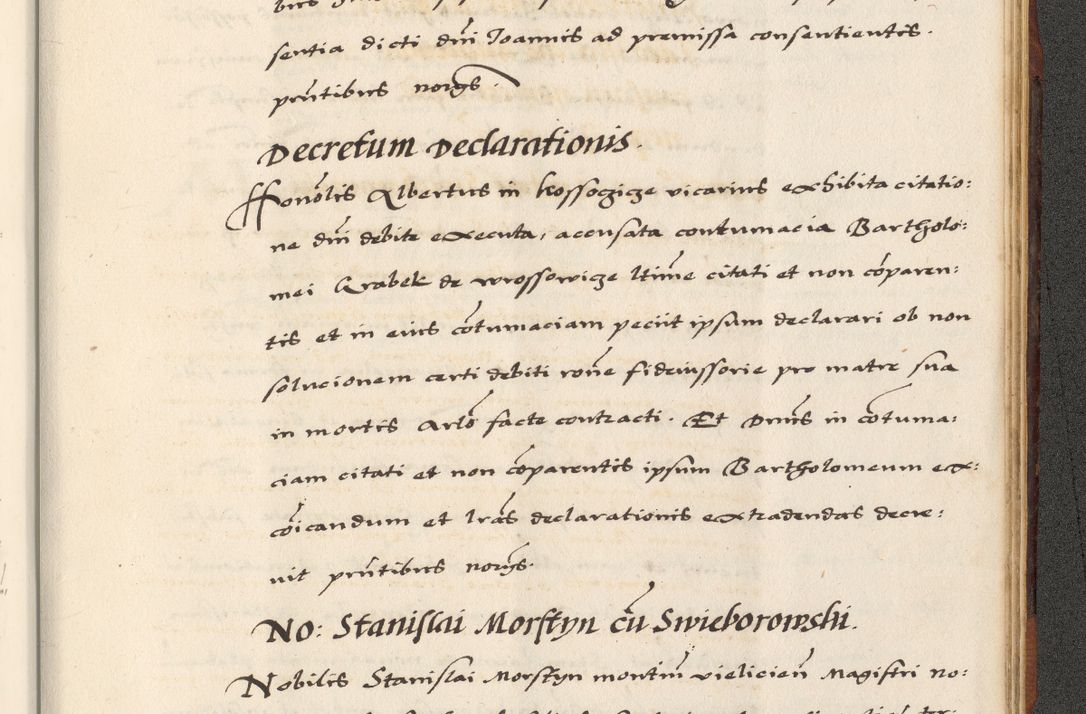 sentia dicti dni Ioannis ad premissa consentientis.
pñtibus norys.
Decretum Declarationis.
Honolis Albertus in kossogicze vicarius exhibita citatio:
ne dni debite executa, accusata contumacia Bartholo:
mei Grabek de wrossowicze ltime citati et non cóparen:
tis et in eius cótumaciam peciit ipsum declarari ob non
solucionem certi debiti rone fideiussorie pro matre sua
in mortis Arlo facte contracti. Et Dnus in cótuma:
ciam citati et non cóparentis ipsum Bartholomeum ex:
cóicandum et lras declarationis extradendas decre:
uit pñtibus norys.
No: Stanislai Morstyn cu Swieborowski.
Nobilis Stanislai Morstyn montiu vieliciен Magistri no: